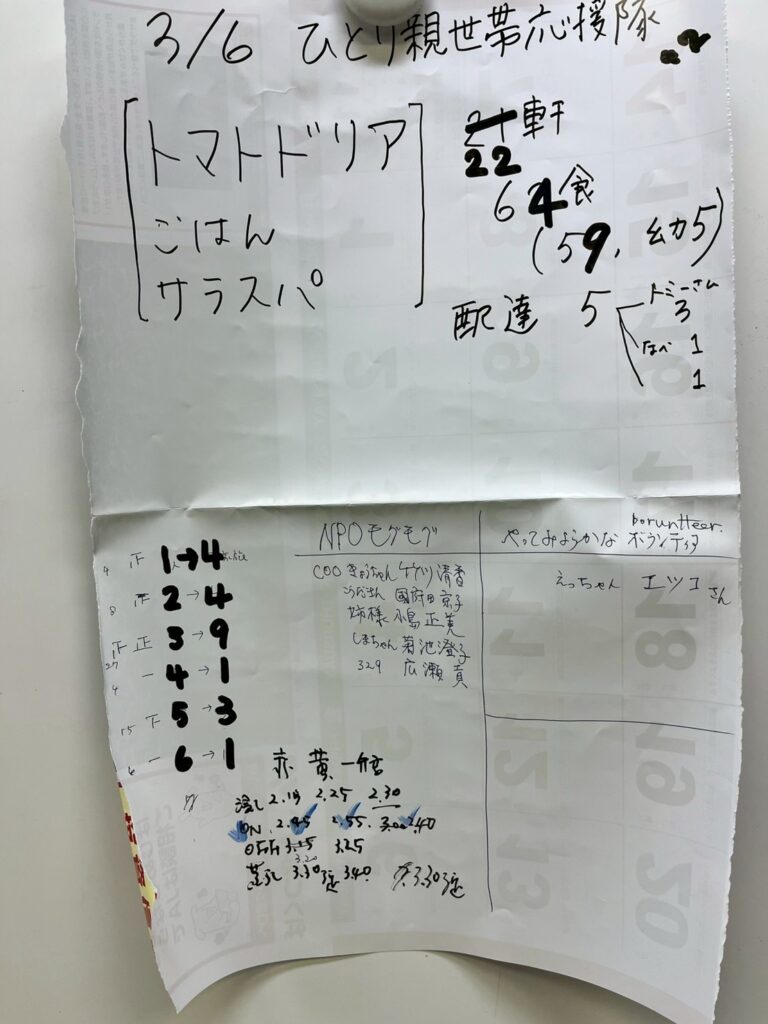 3/6 ひとり親世帯応援隊
トマトドリア
ごはん
サラスパ
22軒
64食
(59, 幼5)
配達 5
トミーさん
3
なべ 1
1
4 正 1人→4
8 正 2→4
正 3→9
27
4 一 4→1
15 下 5→3
6 一 6→1
NPOモグモグ
COO きょうちゃん 清香
國府田京子
姉様 小島正美
しまちゃん 菊池澄子
329 広瀬真
やってみようかな boruntteer.
ボランティア
えっちゃん エツコさん
赤 黄 一釜
浸し 2.15 2.25 2.30
ON. 2.45 2.55. 3.00 2.40
OFF 3.15 3.25
3.20
蒸らし 3.30迄 3.40. 3.30迄